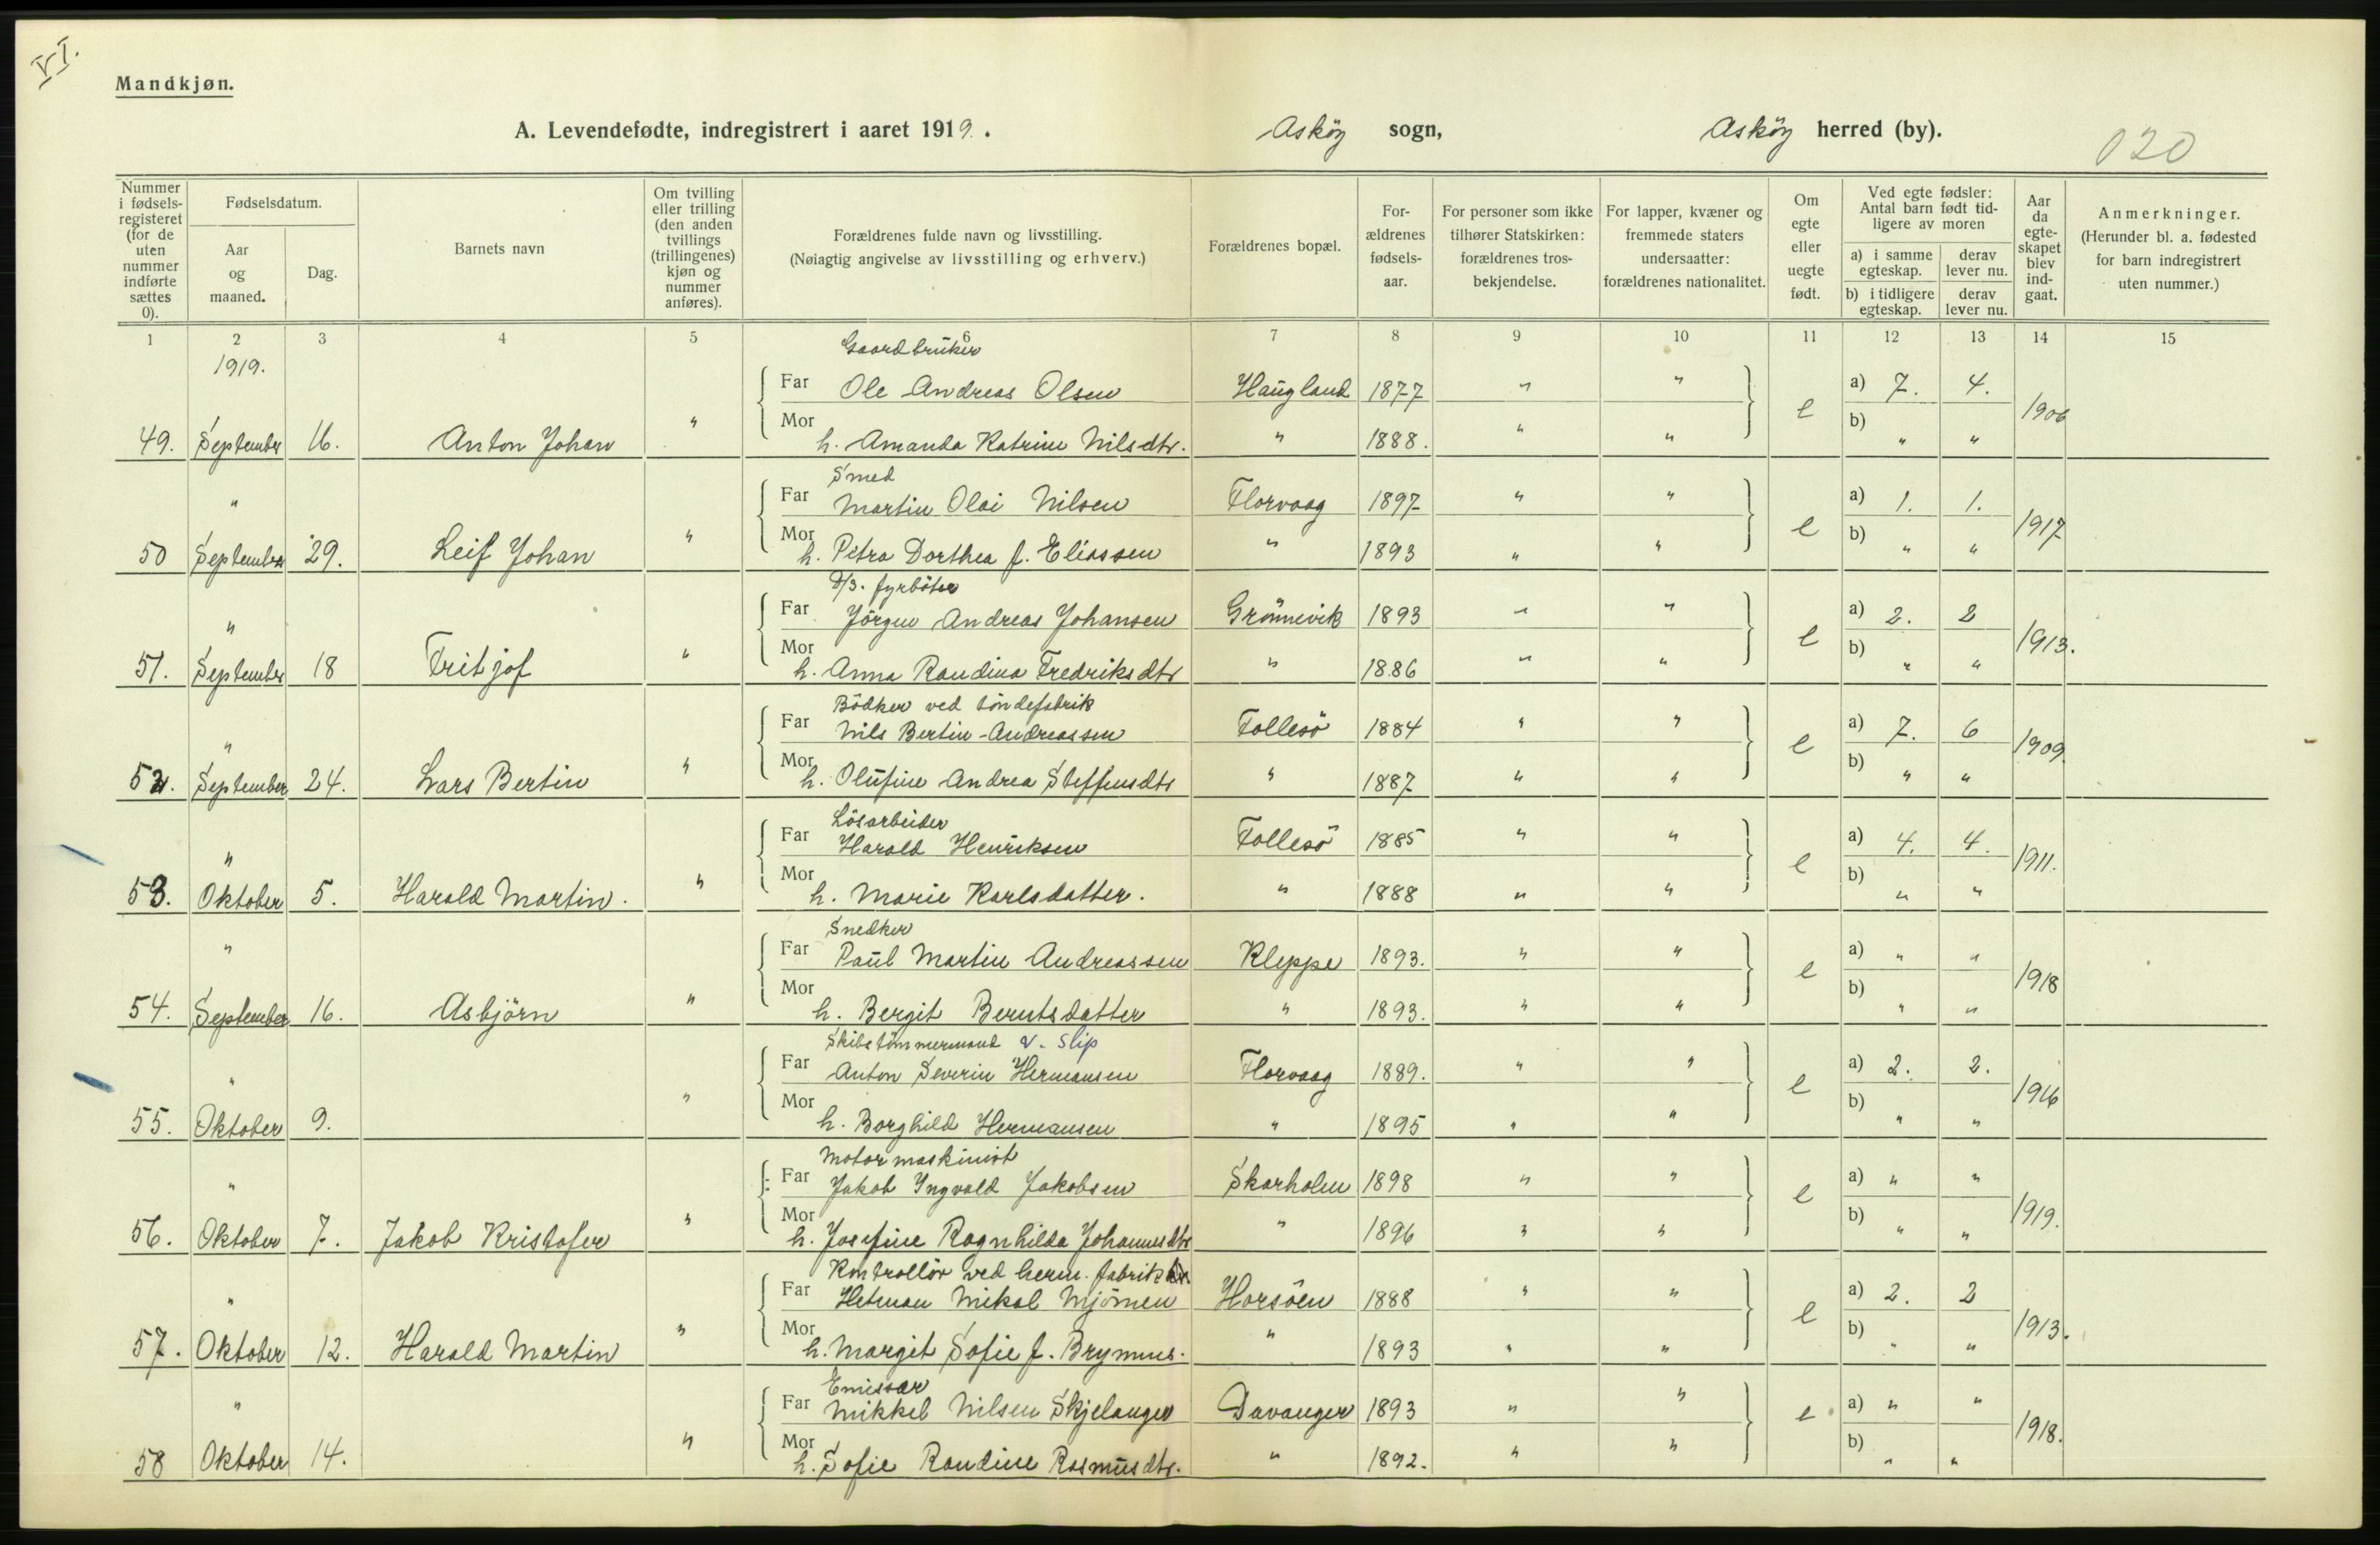 VI.
Mandkjøn.
A. Levendefødte, indregistrert i aaret 1919. Asköy sogn, Asköy herred (by).
020
Nummer i fødsels-registeret (for de uten nummer indførte sættes 0). | Fødselsdatum. Aar og maaned. | Dag. | Barnets navn | Om tvilling eller trilling (den anden tvillings (trillingenes) kjøn og nummer anføres). | Forældrenes fulde navn og livsstilling. (Nøiagtig angivelse av livsstilling og erhverv.) | Forældrenes bopæl. | For-ældrenes fødsels-aar. | For personer som ikke tilhører Statskirken: forældrenes tros-bekjendelse. | For lapper, kvæner og fremmede staters undersaatter: forældrenes nationalitet. | Om egte eller uegte født. | Ved egte fødsler: Antal barn født tid-ligere av moren a) i samme egteskap. b) i tidligere egteskap. | derav lever nu. derav lever nu. | Aar da egte-skapet blev ind-gaat. | Anmerkninger. (Herunder bl. a. fødested for barn indregistrert uten nummer.)
1 2 3 4 5 6 7 8 9 10 11 12 13 14 15
1919. Gaardbruker
Far Ole Andreas Olsen Haugland 1877 " " a) 7. 4.
49. September 16. Anton Johan " Mor h. Amanda Katrine Nilsdtr. " 1888. " " e b) " " 1906
" Smed
Far Martin Olai Nilsen Florvaag 1897 " " a) 1. 1.
50 September 29. Leif Johan " Mor h. Petra Dorthea f. Eliassen " 1893 " " e b) " " 1917
" D/S. fyrböter
Far Jörgen Andreas Johansen Grönnevik 1893 " " a) 2. 2
51. September 18 Fritjof " Mor h. Anna Randina Fredriksdtr " 1886 " " e b) " " 1913.
" Bödker ved töndefabrik
Far Nils Bertin Andreassen Follesö 1884 " " a) 7. 6
52. September 24. Lars Bertin " Mor h. Olufine Andrea Steffensdtr " 1887 " " e b) " " 1909.
" Lösarbeider
Far Harald Henriksen Follesö 1885 " " a) 4. 4.
53. Oktober 5. Harald Martin. " Mor h. Marie Karlsdatter. " 1888 " " e b) " " 1911.
" Snedker
Far Paul Martin Andreassen Kleppe 1893. " " a) " "
54. September 16. Asbjörn " Mor h. Bergit Berntsdatter " 1893. " " e b) " " 1918
" Skibstömmermand v. Slip
Far Anton Severin Hermansen Florvaag 1889. " " a) 2. 2.
55. Oktober 9. " Mor h. Borghild Hermansen " 1895 " " e b) " " 1916
" Motormaskinist
Far Jakob Yngvald Jakobsen Skarholm 1898 " " a) " "
56. Oktober 7. Jakob Kristofer " Mor h. Josefine Ragnhilda Johannesdtr " 1896 " " e b) " " 1919.
" Kontrollör ved herm. fabrik
Far Hetman Mikal Mjömen Horsöen 1888 " " a) 2. 2
57. Oktober 12. Harald Martin " Mor h. Margit Sofie f. Brynnus. " 1893 " " e b) " " 1913.
" Emissær
Far Mikkel Nilsen Skjelanger Davanger 1893 " " a) " "
58 Oktober 14. " Mor h. Sofie Randine Rasmusdtr. " 1892. " " e b) " " 1918.